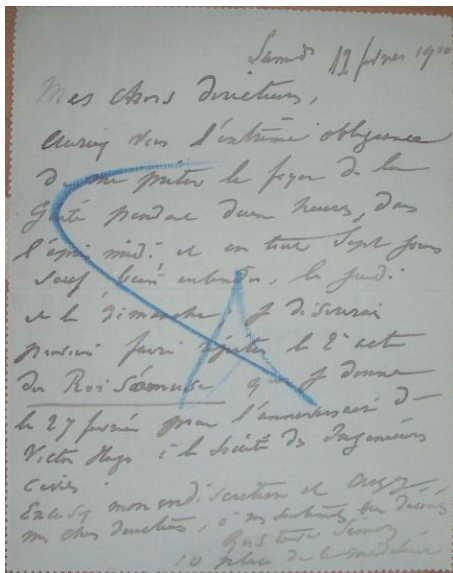 Samedi 12 février 1910
Mes chers directeurs,
auriez vous l'extrême obligeance
de me prêter le foyer de la
Gaîté pendant deux heures, dans
l'après midi, et en tout sept jours
sauf bien entendu, le jeudi
et le dimanche. Je désirerais
pouvoir faire répéter le 2e acte
du Roi s'amuse que je donne
le 27 février pour l'anniversaire de
Victor Hugo à la Société des Ingénieurs
Civils.
Excusez mon indiscrétion et croyez,
mes chers directeurs, à mes sentiments
Gustave Simon
10 place de la Madeleine